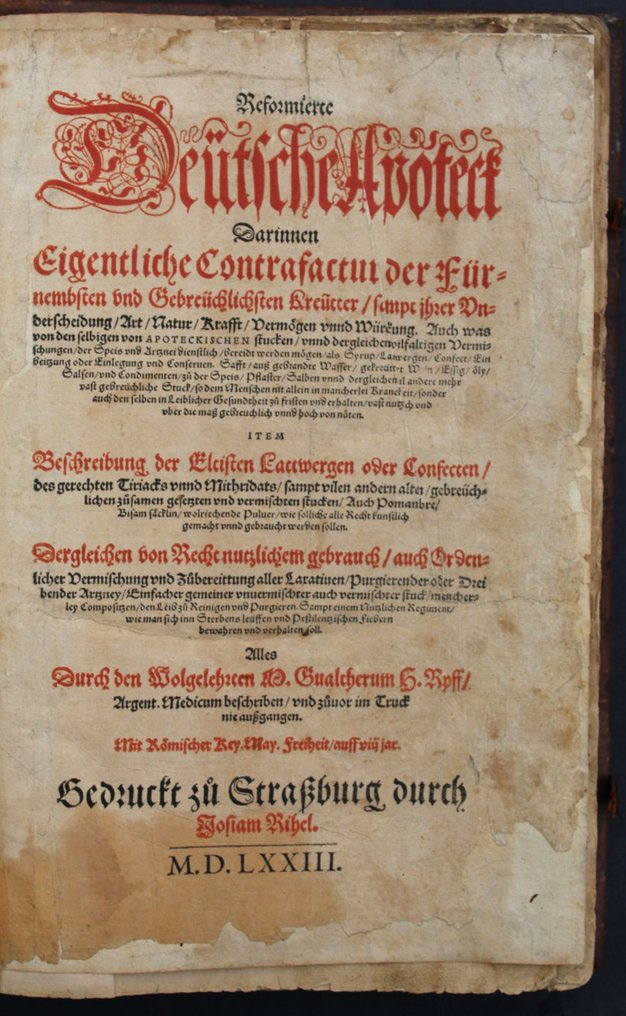 Reformierte
Deütsche Apoteck
Darinnen
Eigentliche Contrafactur der Für-
nembsten vnd Gebreüchlichsten Kreütter / sampt jhrer Vn-
derscheidung / Art / Natur / Krafft / Vermögen vnnd Würckung. Auch was
von den selbigen von APOTECKISCHEN stucken / vnnd dergleichen vilfaltigen Vermi-
schungen / der Speis vnd Artznei dienstlich / bereidt werden mögen / als Syrup / Latwergen / Confect / Ein
beitzung oder Einlegung vnd Conseruen. Safft / auß gebrandte Wasser / gekreüttet Wein / Essig / öly /
Salsen / vnd Condimenten / zů der Speis / Pflaster / Salben vnnd dergleichen andere mehr
vast gebreüchliche Stuck / so dem Menschen nit allein in mancherlei Kranckeit / sonder
auch den selben in Leiblicher Gesundtheit zů fristen vnd erhalten / vast nutzlich vnd
vber die maß gebreuchlich vnnd hoch von nöten.
ITEM
Beschreibung der Eltisten Lattwergen oder Confecten /
des gerechten Tiriacks vnnd Mithridats / sampt vilen andern alter / gebreüch-
lichen zůsamen gesetzten vnd vermischten stucken / Auch Pomanbre /
Bisam säcklin / wolriechende Puluer / wie solliche alle Recht kunstlich
gemacht vnnd gebraucht werden sollen.
Dergleichen von Recht nutzlichem gebrauch / auch Orden-
licher Vermischung vnd Zůbereittung aller Laxatiuen / Purgierender oder Trei
bender Artzney / Einfacher gemeiner vnuermischter auch vermischter stuck / mancher-
ley Compositzen / den Leib zů Reinigen vnd Purgieren. Sampt einem Nutzlichen Regiment /
wie man sich inn Sterbens leüffen vnd Pestilentzischen Fiebern
bewahren vnd verhalten soll.
Alles
Durch den Wolgelehrten M. Gualtherum H. Ryff /
Argent. Medicum beschriben / vnd zůuor im Truck
nie außgangen.
Mit Römischer Key. May. Freiheit / auff viij jar.
Gedruckt zů Straßburg durch
Josiam Rihel.
M. D. LXXIII.